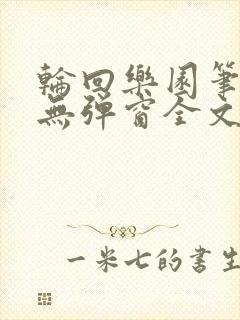 輪回樂園筆
無彈窗全文
一米七的書生